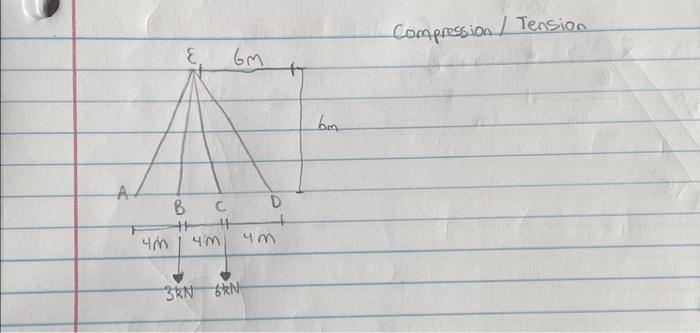 Compression / Tension
E 6m
6m
A B C D
4m 4m 4m
3kN 6kN